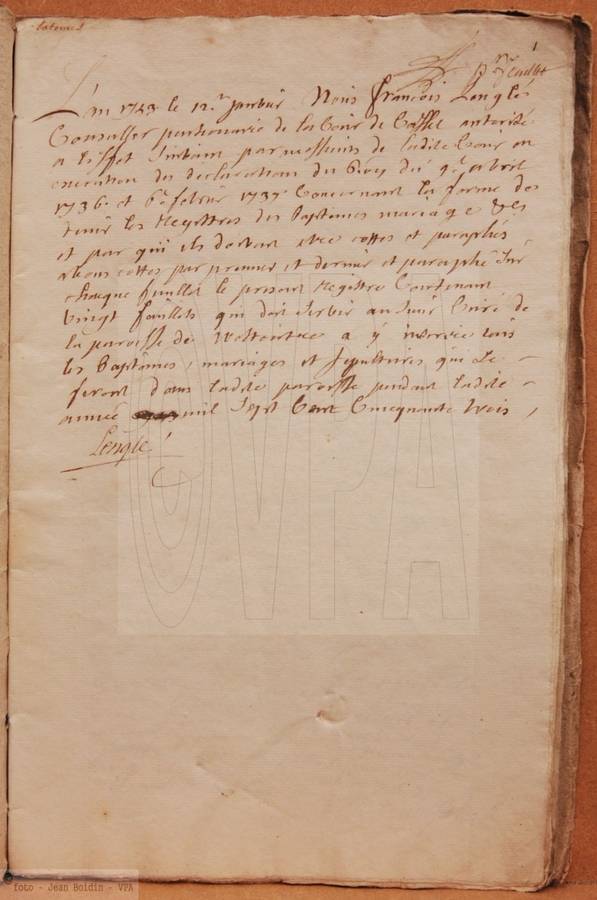 1
p.er feuillet
L'an 1753 le 12.e Janvier Nous François Lenglé
Conseiller pentionaire de la Cour de Cassel autorisé
a l'effet Suivant par messieurs de ladite Cour en
execution des declarations du Roy du 9.e avril
1736 et 6.e fevrier 1737 Concernant la forme de
tenir les Registres des Baptemes mariage &es
et par qui ils doivent etre cottés et paraphés
avons cottes par premier et dernier et paraphé Sur
chaque feuillet le present Registre Contenant
vingt feuillets qui doit servir au Sieur Curé de
la paroisse de a y inserer tous
les Baptêmes, mariages et Sepultures qui Se
feront dans ladite paroisse pendant ladite
année mil Sept Cent Cinquante trois,
Lenglé
foto - Jean Boidin - VPA
VPA